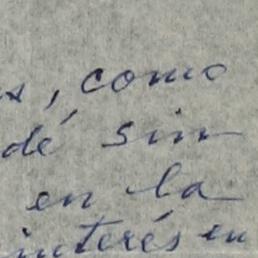 , como
dé sin
en la
interés en